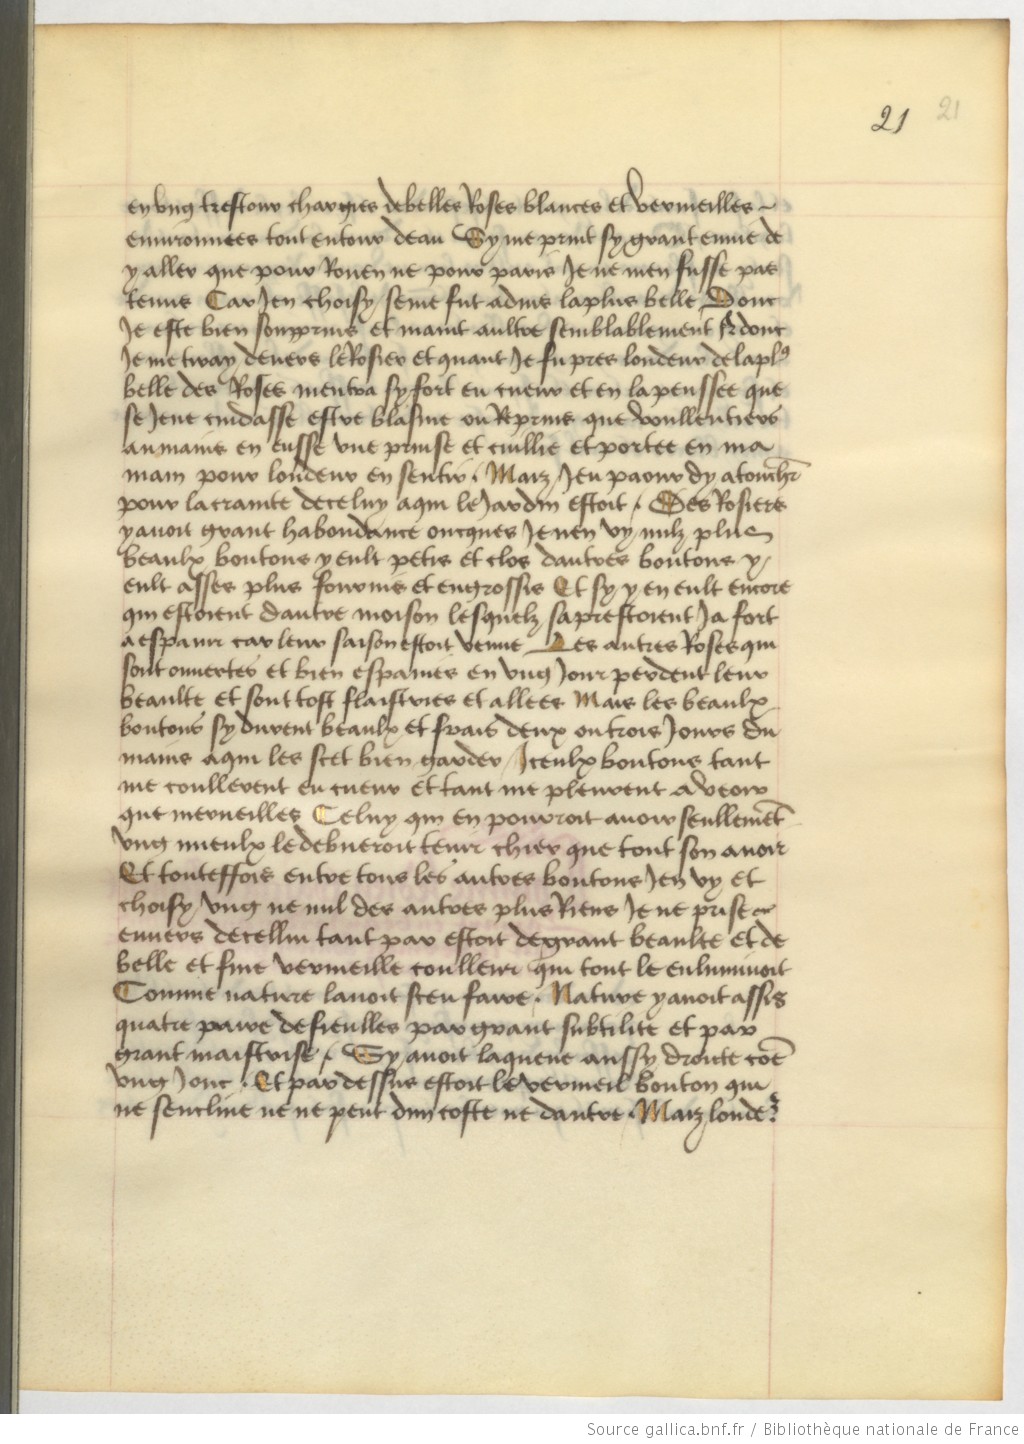 21 21
en vng trestour chargies de belles Roses blances et vermeilles
enuironnees tout entour deau Sy me print sy grant enuie de
y aller que pour Rouen ne pour paris Je ne men fusse pas
tenus Car Jen choisy seme fut aduis la plus belle Donc
Je este bien sourprins et maint aultre semblablement donc
Je me tiray deuers le Rosier et quant Je fu pres loudeur de la pl9
belle des Roses mentra sy fort en cueur et en la penssee que
se Je ne cuidasse estre blasme ou Reprins que voullentiers
au mains en eusse vne prinse et cuillie et portee en ma
main pour loudeur en sentir . Maiz Jeu paour dy atouchr
pour la crainte de celuy a qui le Jardin estoit . Des Rosiers
y auoit grant habondance oncques Je nen vy nulz plus
beaulx boutons y eult petis et clos dautres boutons y
eult asses plus fournis et engrossis Et sy y en eult encore
qui estoient dautre moison lesquelz saprestoient Ja fort
a espanir car leur saison estoit venue Les autres Roses qui
sont ouuertes et bien espanies en vng Jour perdent leur
beaulte et sont tost flaistries et allees Mais les beaulx
boutons sy durent beaulx et frais deux ou trois Jours du
mains a qui les scet bien garder Iceulx boutons tant
me coullerent en cueur et tant me pleurent a veoir
que merueilles Celuy qui en pouroit auoir seullemet
vng mieulx le debueroit tenir chier que tout son auoir
Et touteffois entre tous les autres boutons Jen vy et
choisy vng ne nul des autres plus Riens Je ne prise
enuers de cellui tant par estoit de grant beaulte et de
belle et fine vermeille coulleur qui tout le enluminoit
Comme nature lauoit sceu faire . Nature y auoit assis
quatre paire de fieulles par grant subtilite et par
grant maistrise . Sy auoit la queue aussy droicte coe
vng Jonc . Et par dessus estoit le vermeil bouton qui
ne sencline ne ne peut dun coste ne dautre . Maiz loudeur
Source gallica.bnf.fr / Bibliothèque nationale de France